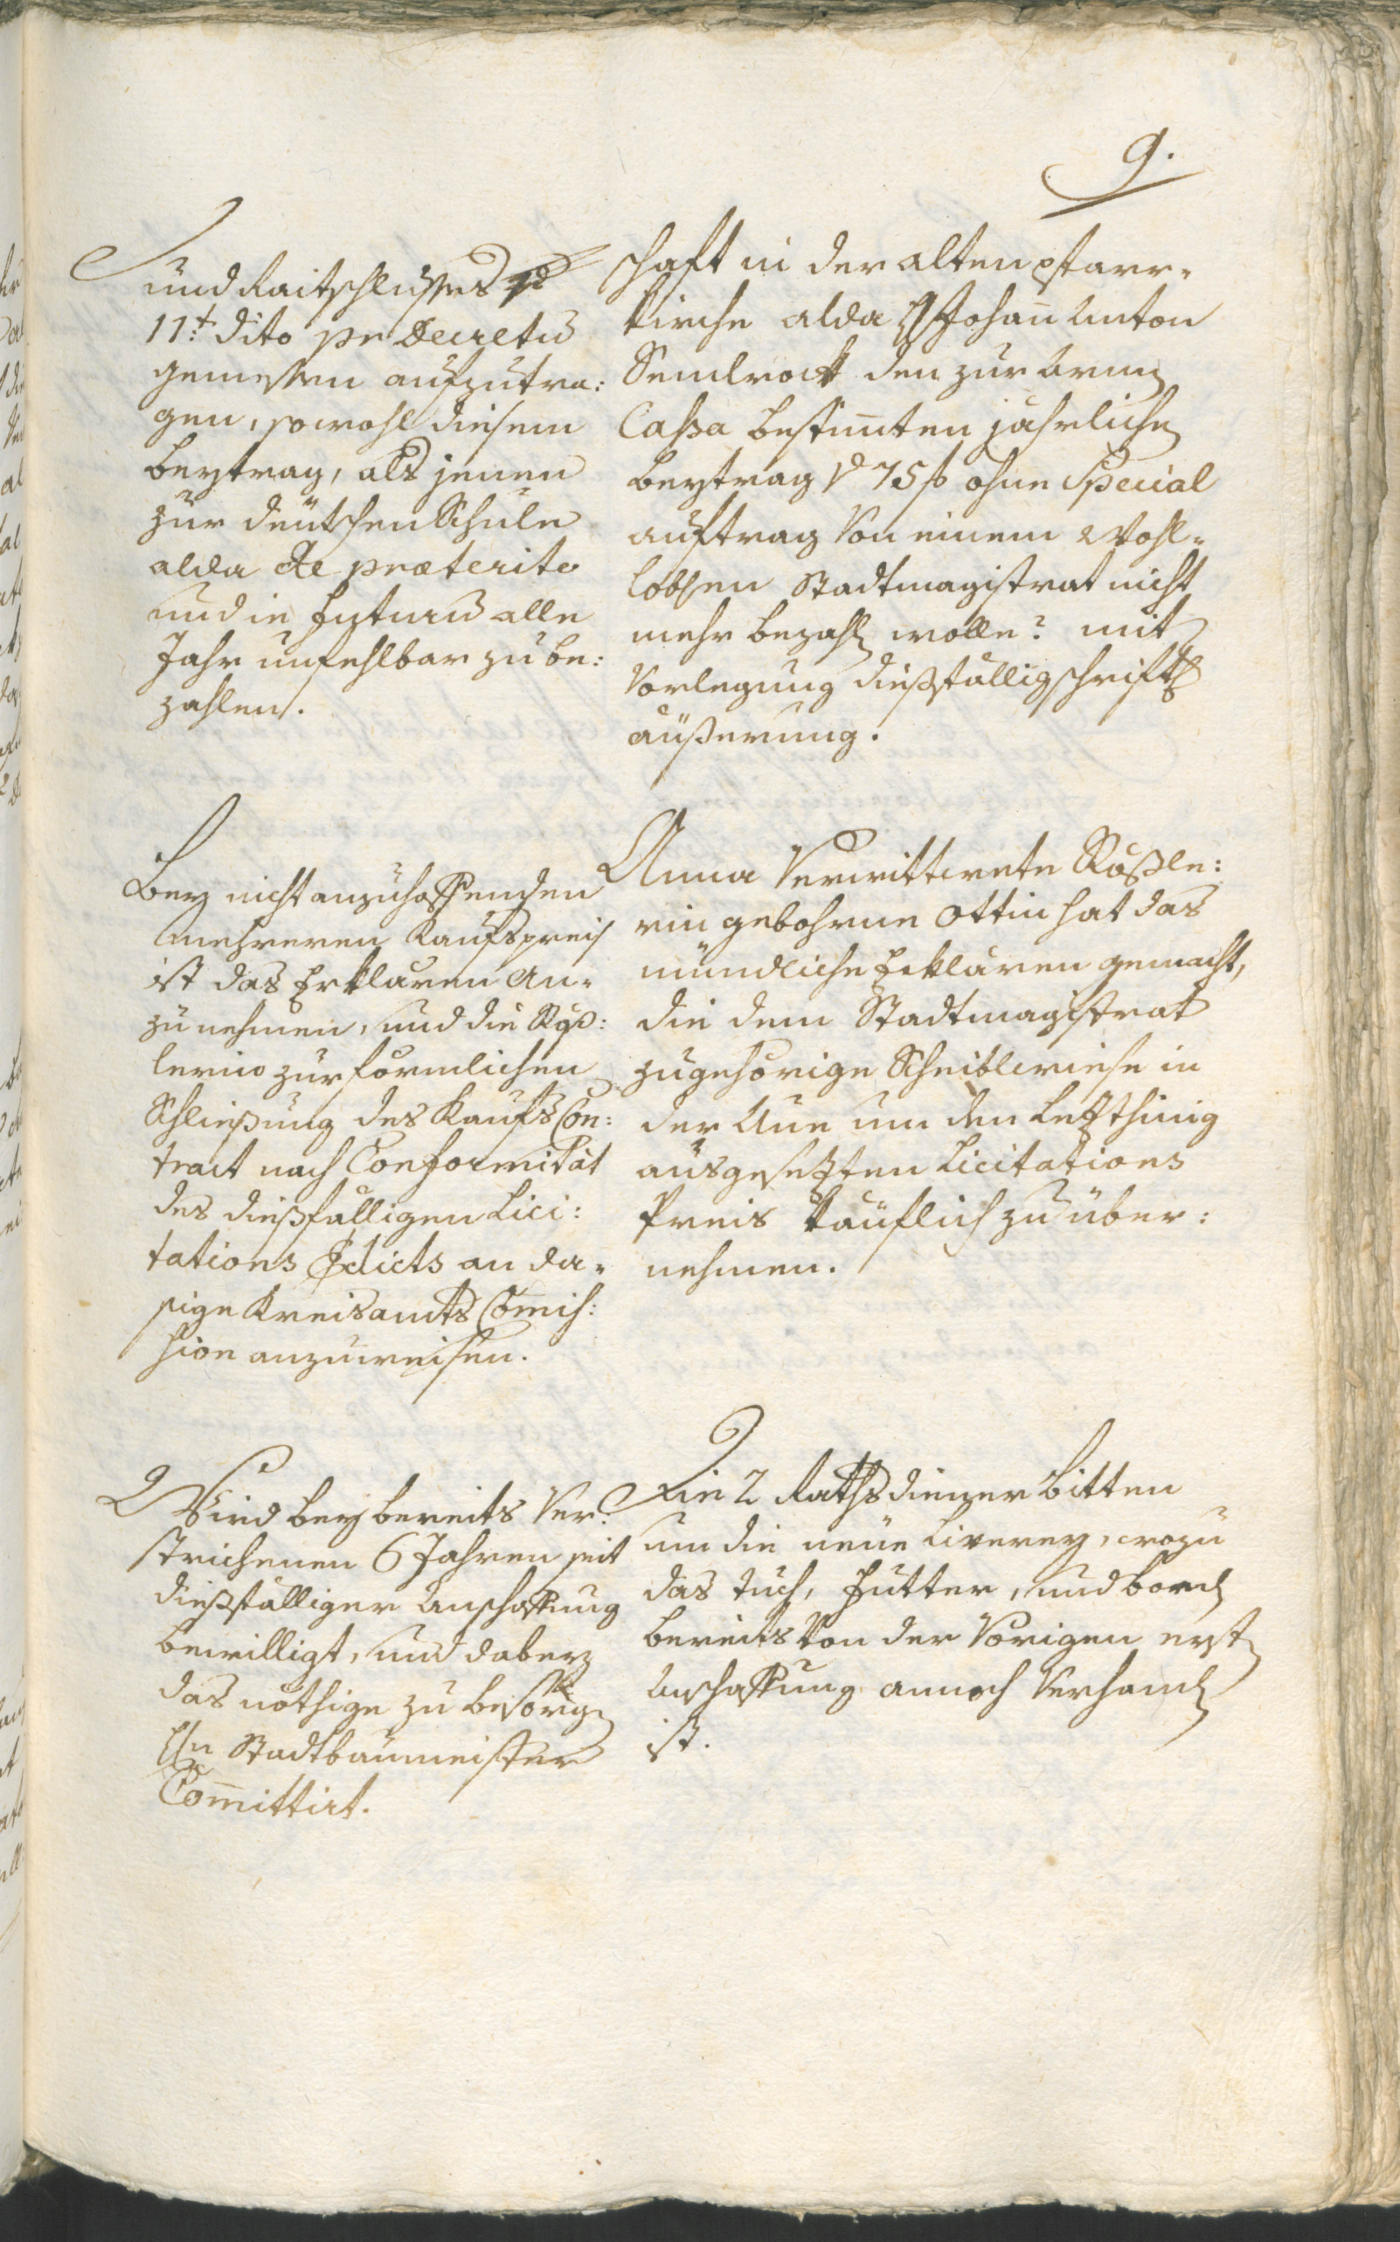 9.
und Raitschlusses de
11t. dito per Decretu
gemessen aufzutra:
gen, sowohl diesem
beytrag, als jenen
zur deutschen Schule
alda de præterito
und in futurū alle
Jahr unfehlbar zu be:
zahlen.
schaft in der alten Pfarr-
kirche alda H Johan̄ Anton
Sendrock den zur Armen
Cassa bestim̄ten jährlichen
beytrag P 75 f ohne Special
auftrag Von einem Wohl-
löbḷen Stadtmagistrat nicht
mehr bezahlen wolle? mit
Vorlegung dießfällig schriftl
äußerung.
Bey nicht anzuhoffenden
mehreren Kaufspreis
ist das Erklären an-
zunehmen, und die Röß:
lerin zur förmlichen
Schließung des Kaufs Con:
tract nach Conformität
des dießfälligen Lici:
tations Edicts an da-
sige Kreisamts Com̄is:
sion anzuweisen.
Anna Verwittwete Rößle:
rin gebohrne Ottin hat das
mündliche Erklären gemacht,
die dem Stadtmagistrat
zugehörige Scheiblwiese in
der Aue um den letzthinig
ausgesetzten Licitations
Preis käuflich zu über:
nehmen.
Wird bey bereits Ver:
strichenen 6 Jahren seit
dießfälliger Anschaffung
bewilligt, und dabey
das nöthige zu besorgen
Hn Stadtbaumeister
Com̄ittirt.
Die 2 Rathsdiener bitten
um die neue Liverey, wozu
das Tuch, Futter, und borden
bereits Von der Vorigen ersten
Anschaffung annoch Verhanden
ist.